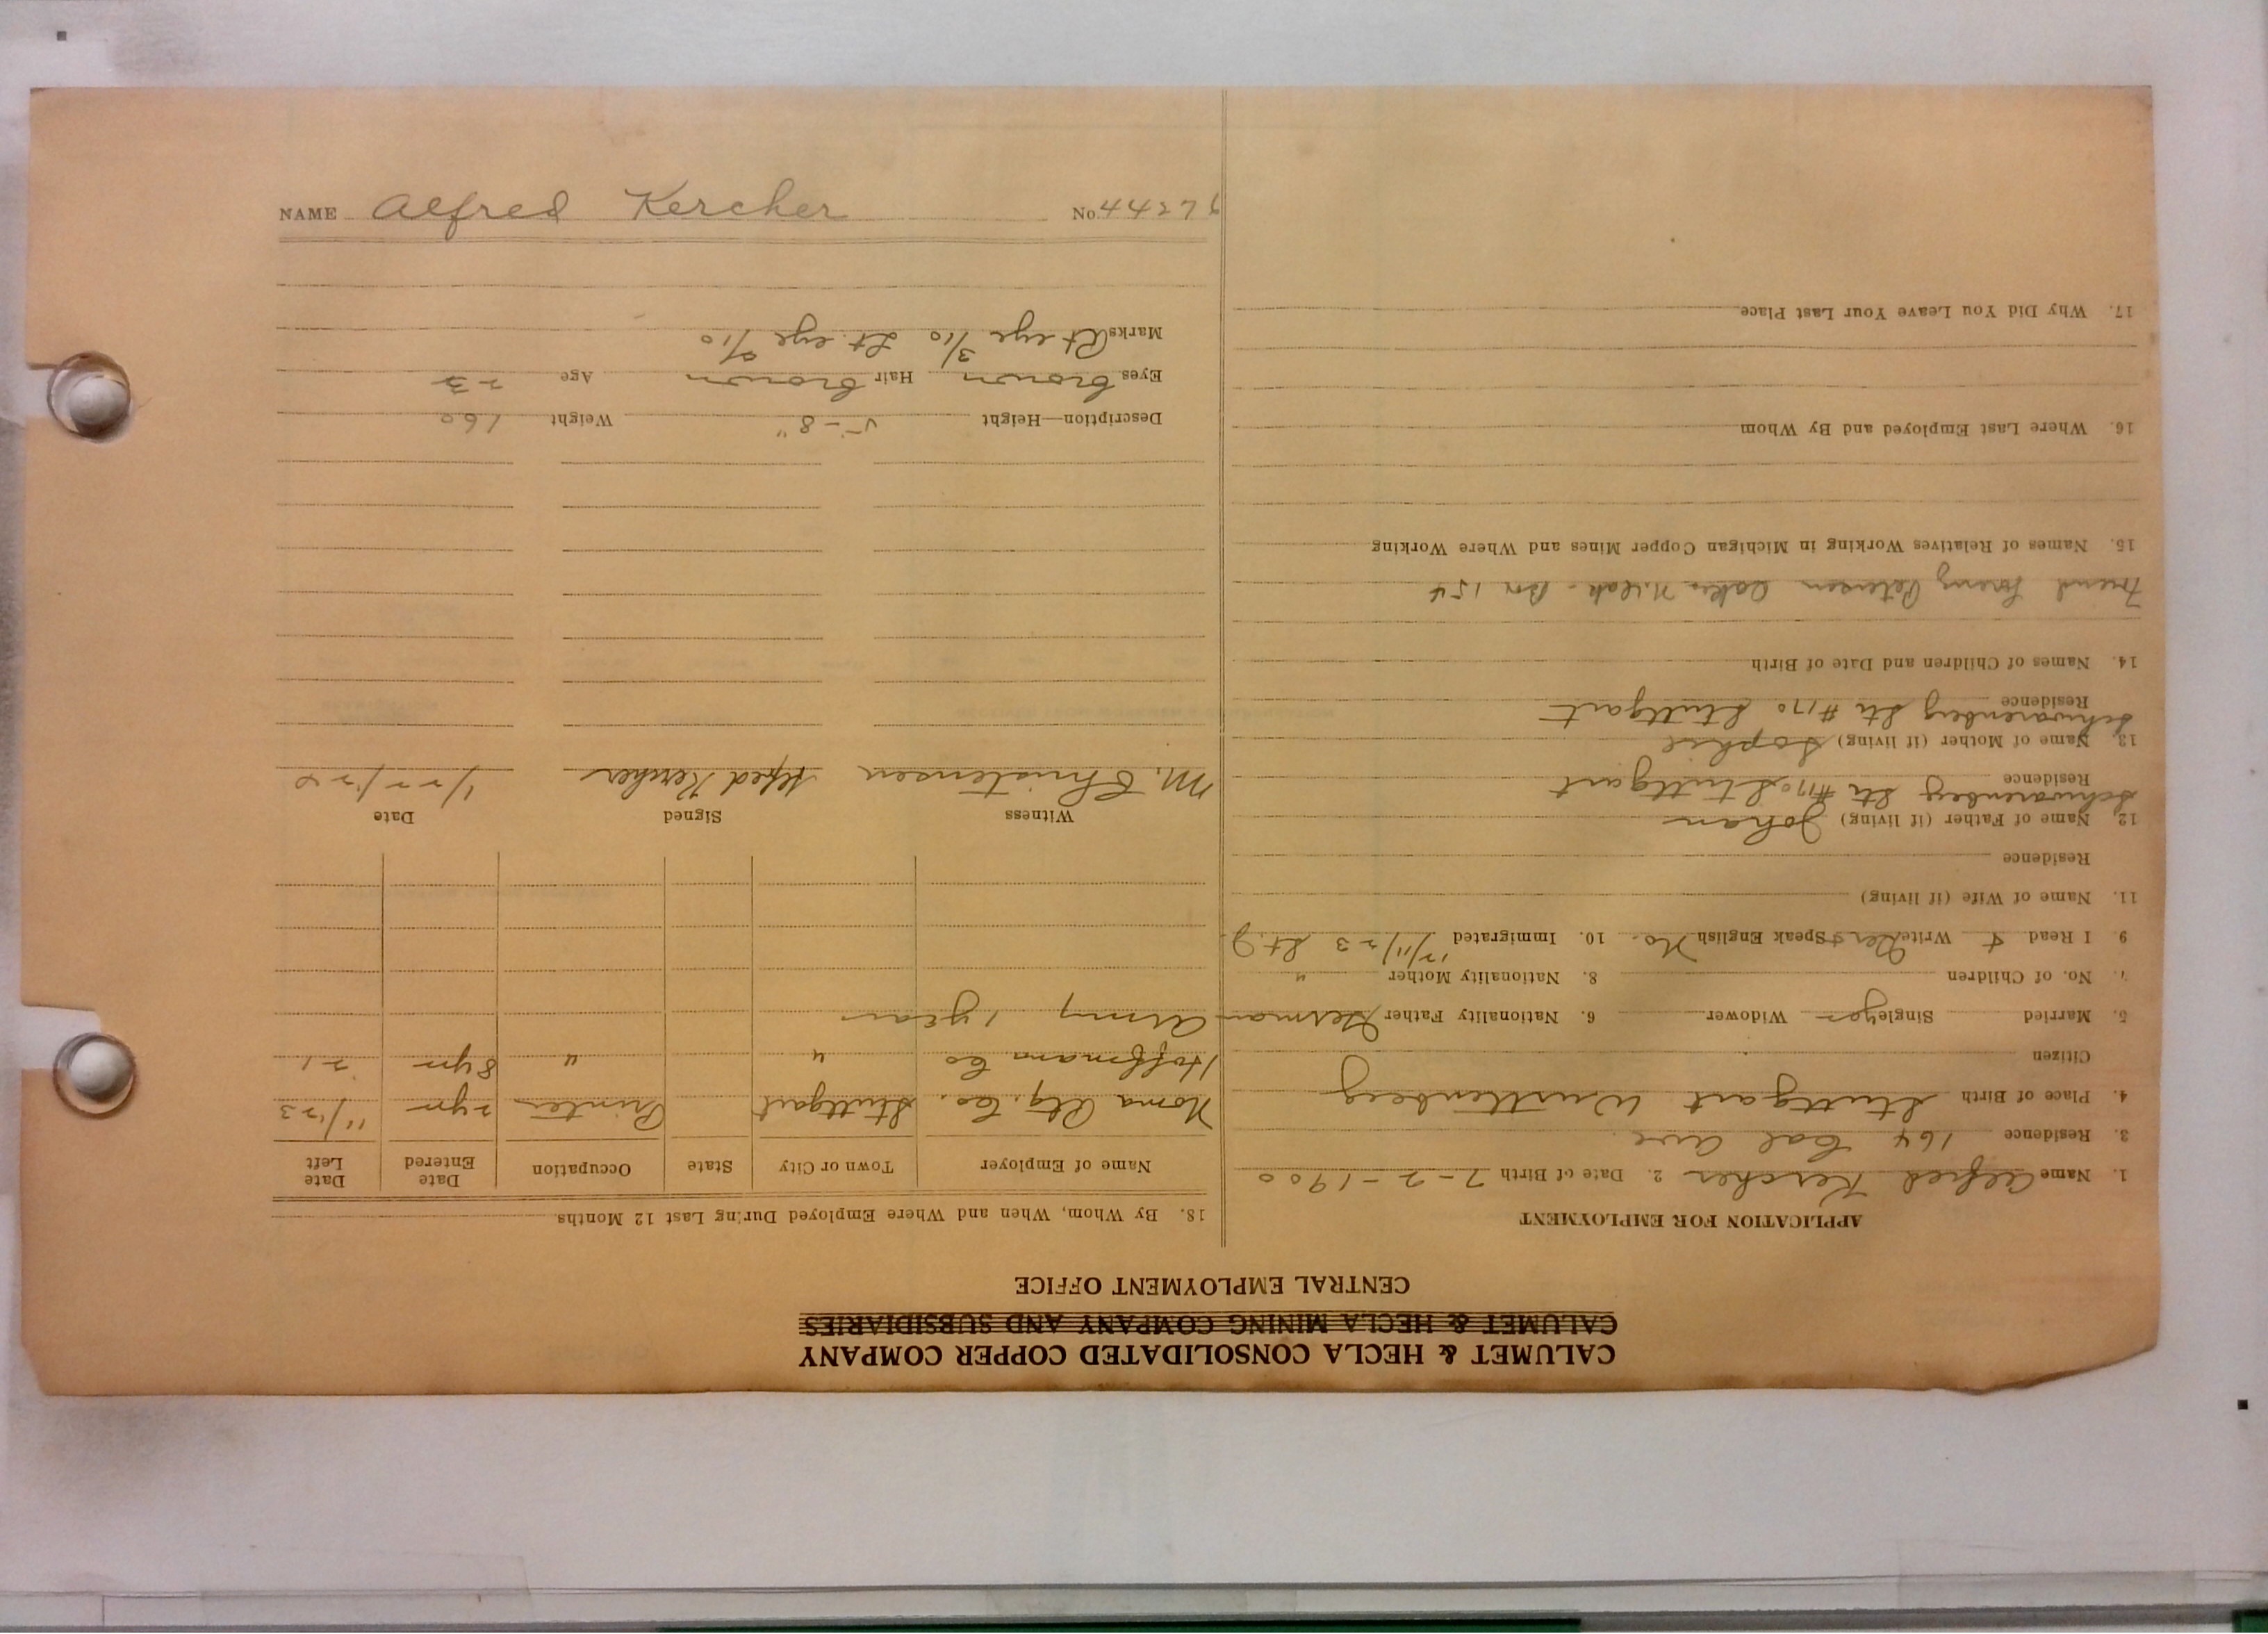 CALUMET & HECLA CONSOLIDATED COPPER COMPANY
CALUMET & HECLA MINING COMPANY AND SUBSIDIARIES
CENTRAL EMPLOYMENT OFFICE
APPLICATION FOR EMPLOYMENT
1. Name Alfred Kercher 2. Date of Birth 7-2-1900
3. Residence 164 Cal Ave.
4. Place of Birth Stuttgart Wurttenberg
Citizen
5. Married Single yes Widower 6. Nationality Father German
7. No. of Children 8. Nationality Mother "
9 I Read + Write Ger + Speak English No. 10. Immigrated 12/11/23
11. Name of Wife (if living)
Residence
12. Name of Father (if living) Johan
Residence
Schwarenberg Str #170 Stuttgart
13. Name of Mother (if living) Sophie
Residence
Schwarenberg Str #170 Stuttgart
14. Names of Children and Date of Birth
Friend Petersen Box 154
15. Names of Relatives Working in Michigan Copper Mines and Where Working
16. Where Last Employed and By Whom
17. Why Did You Leave Your Last Place
18. By Whom, When and Where Employed During Last 12 Months
Name of Employer Town or City State Occupation Date Entered Date Left
Ptg. Co. Stuttgart Printer 2 yrs 11/23
Hoffmann Co " " 8 yrs 21
Army 1 year
Witness Signed Date
M. Christensen Alfred Kercher 1/22/24
Description—Height 5-8" Weight 160
Eyes brown Hair brown Age 23
Marks Rt eye 3/10 Lt. eye
NAME Alfred Kercher No. 44276